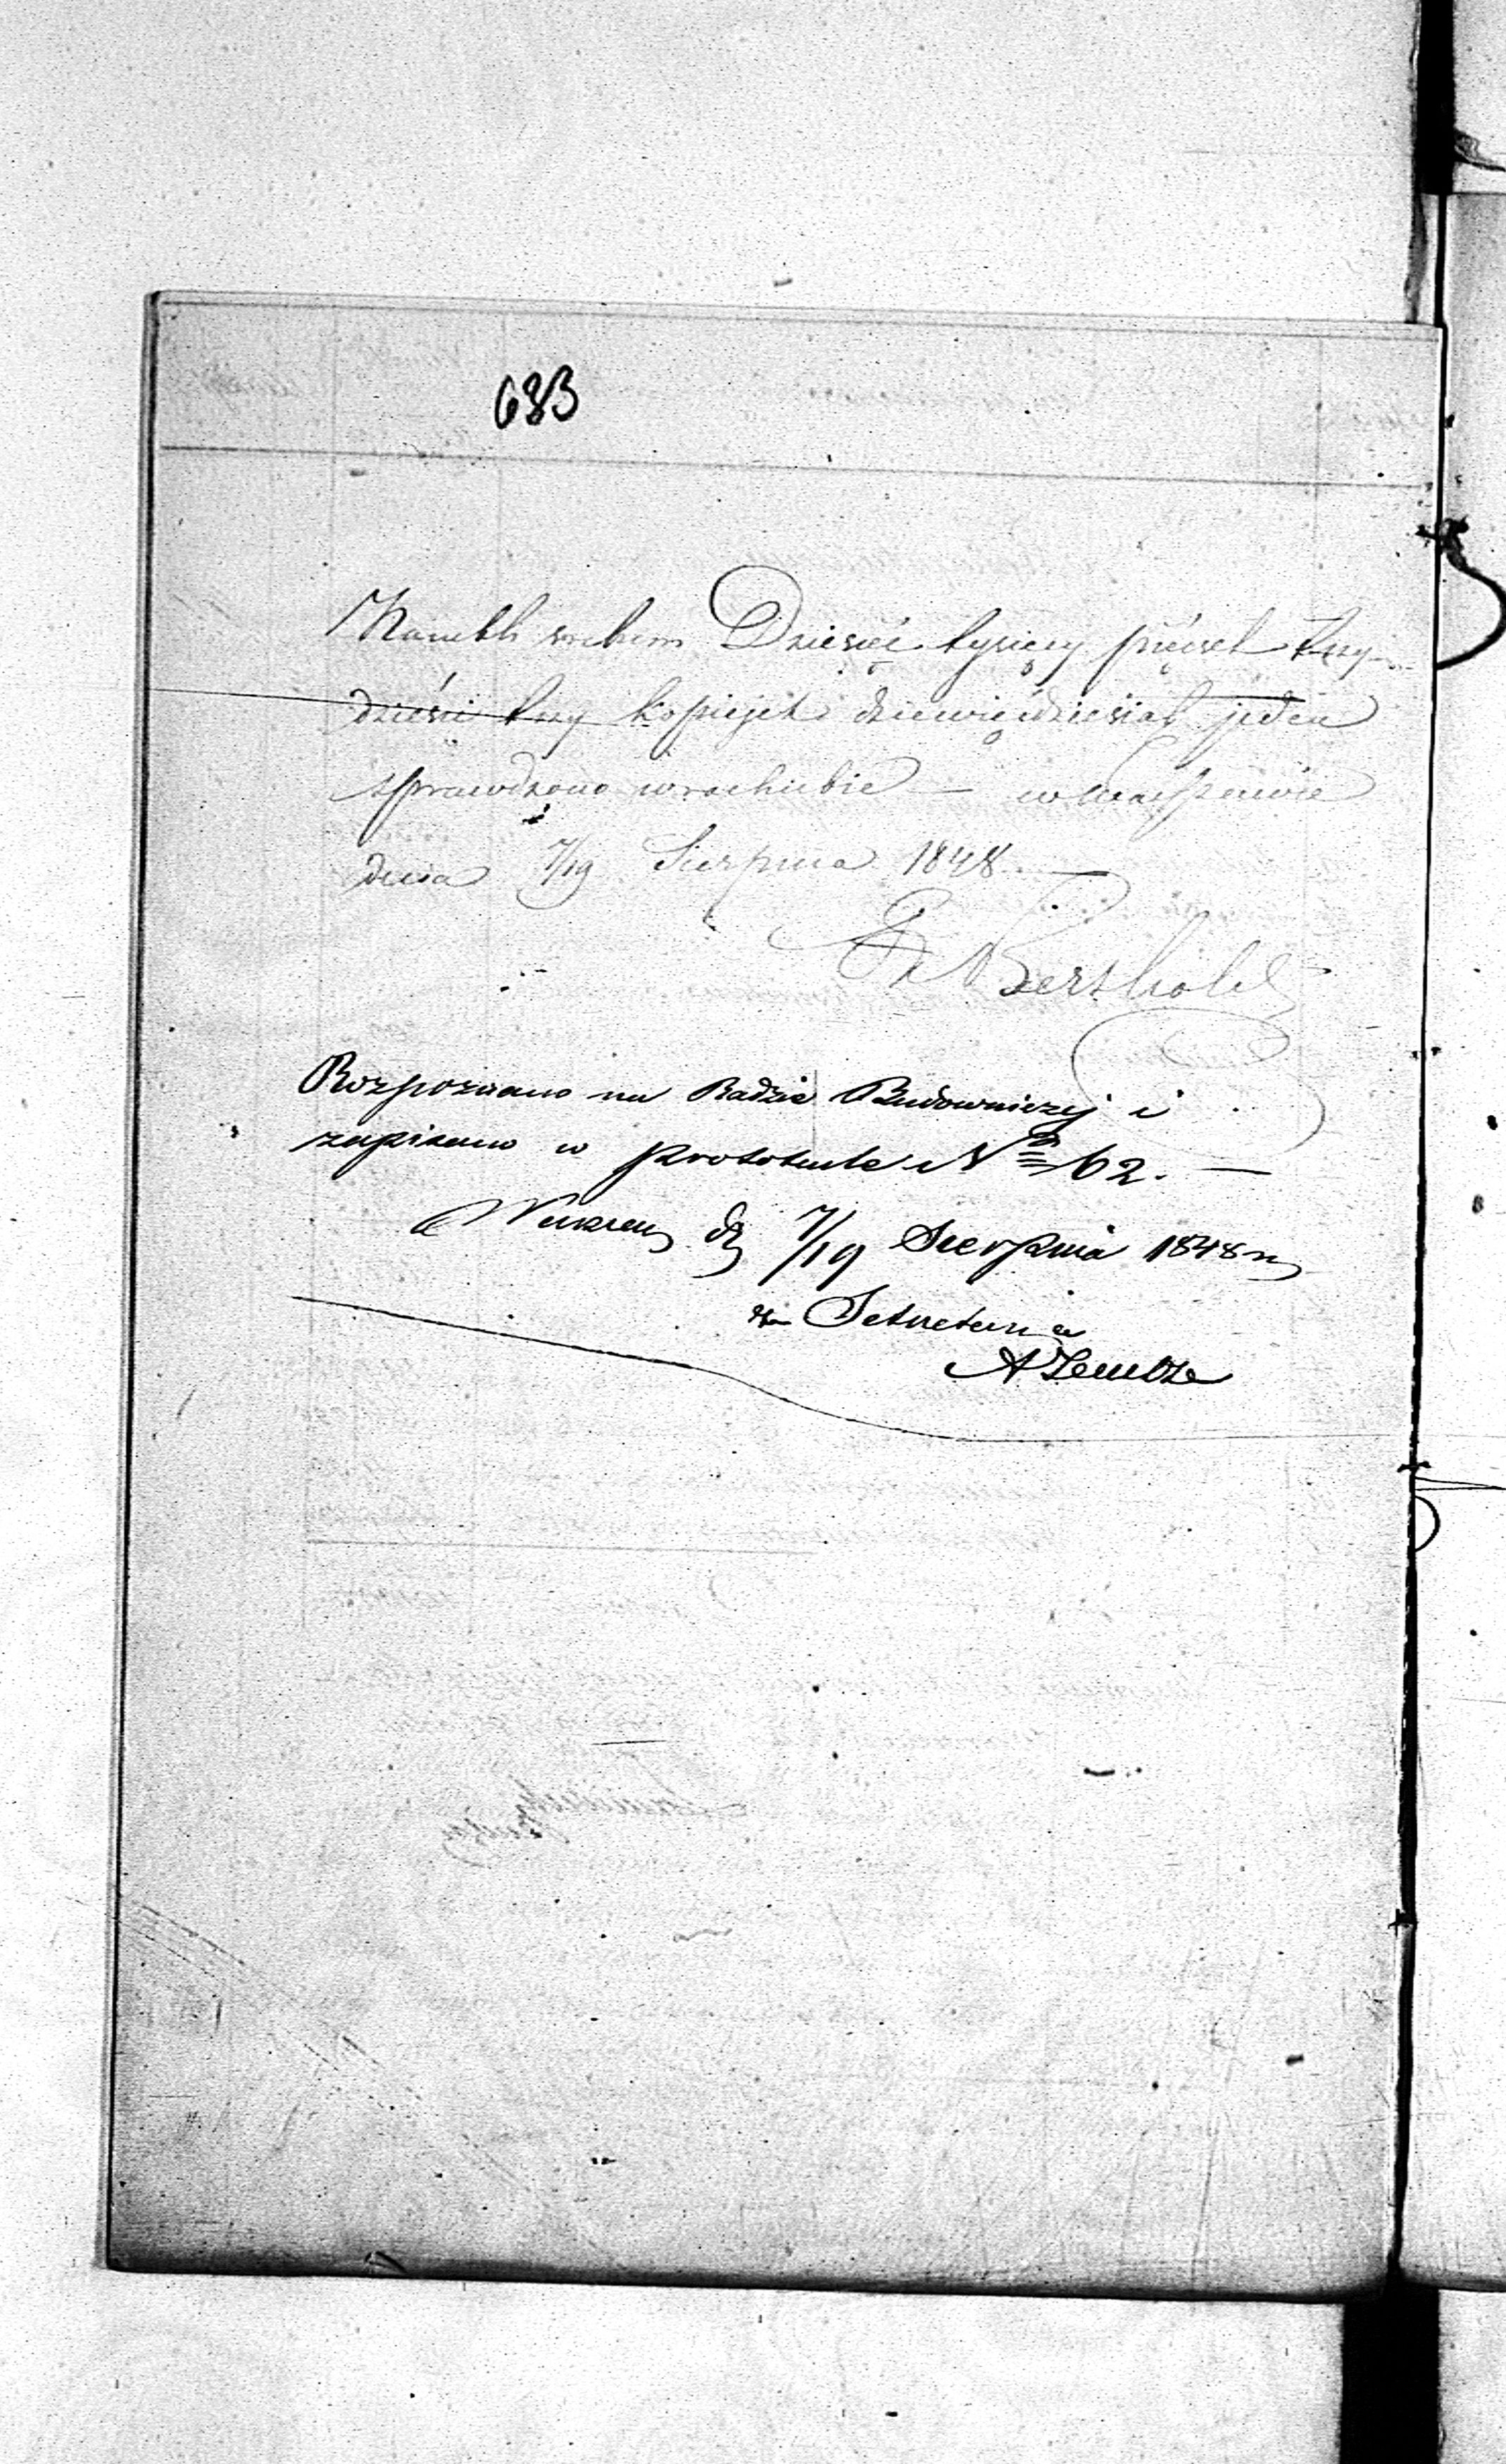 683
Dziesięć tysięcy pięćset trzy-
dzieści trzy kopiejek dziewięćdziesiąt jeden
sprawdzono w rachubie — w Warszawie
dnia 7/19 Sierpnia 1848.
Berthold
Rozpoznano na Radzie Budowniczej i
zapisano w protokule No 62. —
Warszawa d. 7/19 Sierpnia 1848 r.
Sekretarza